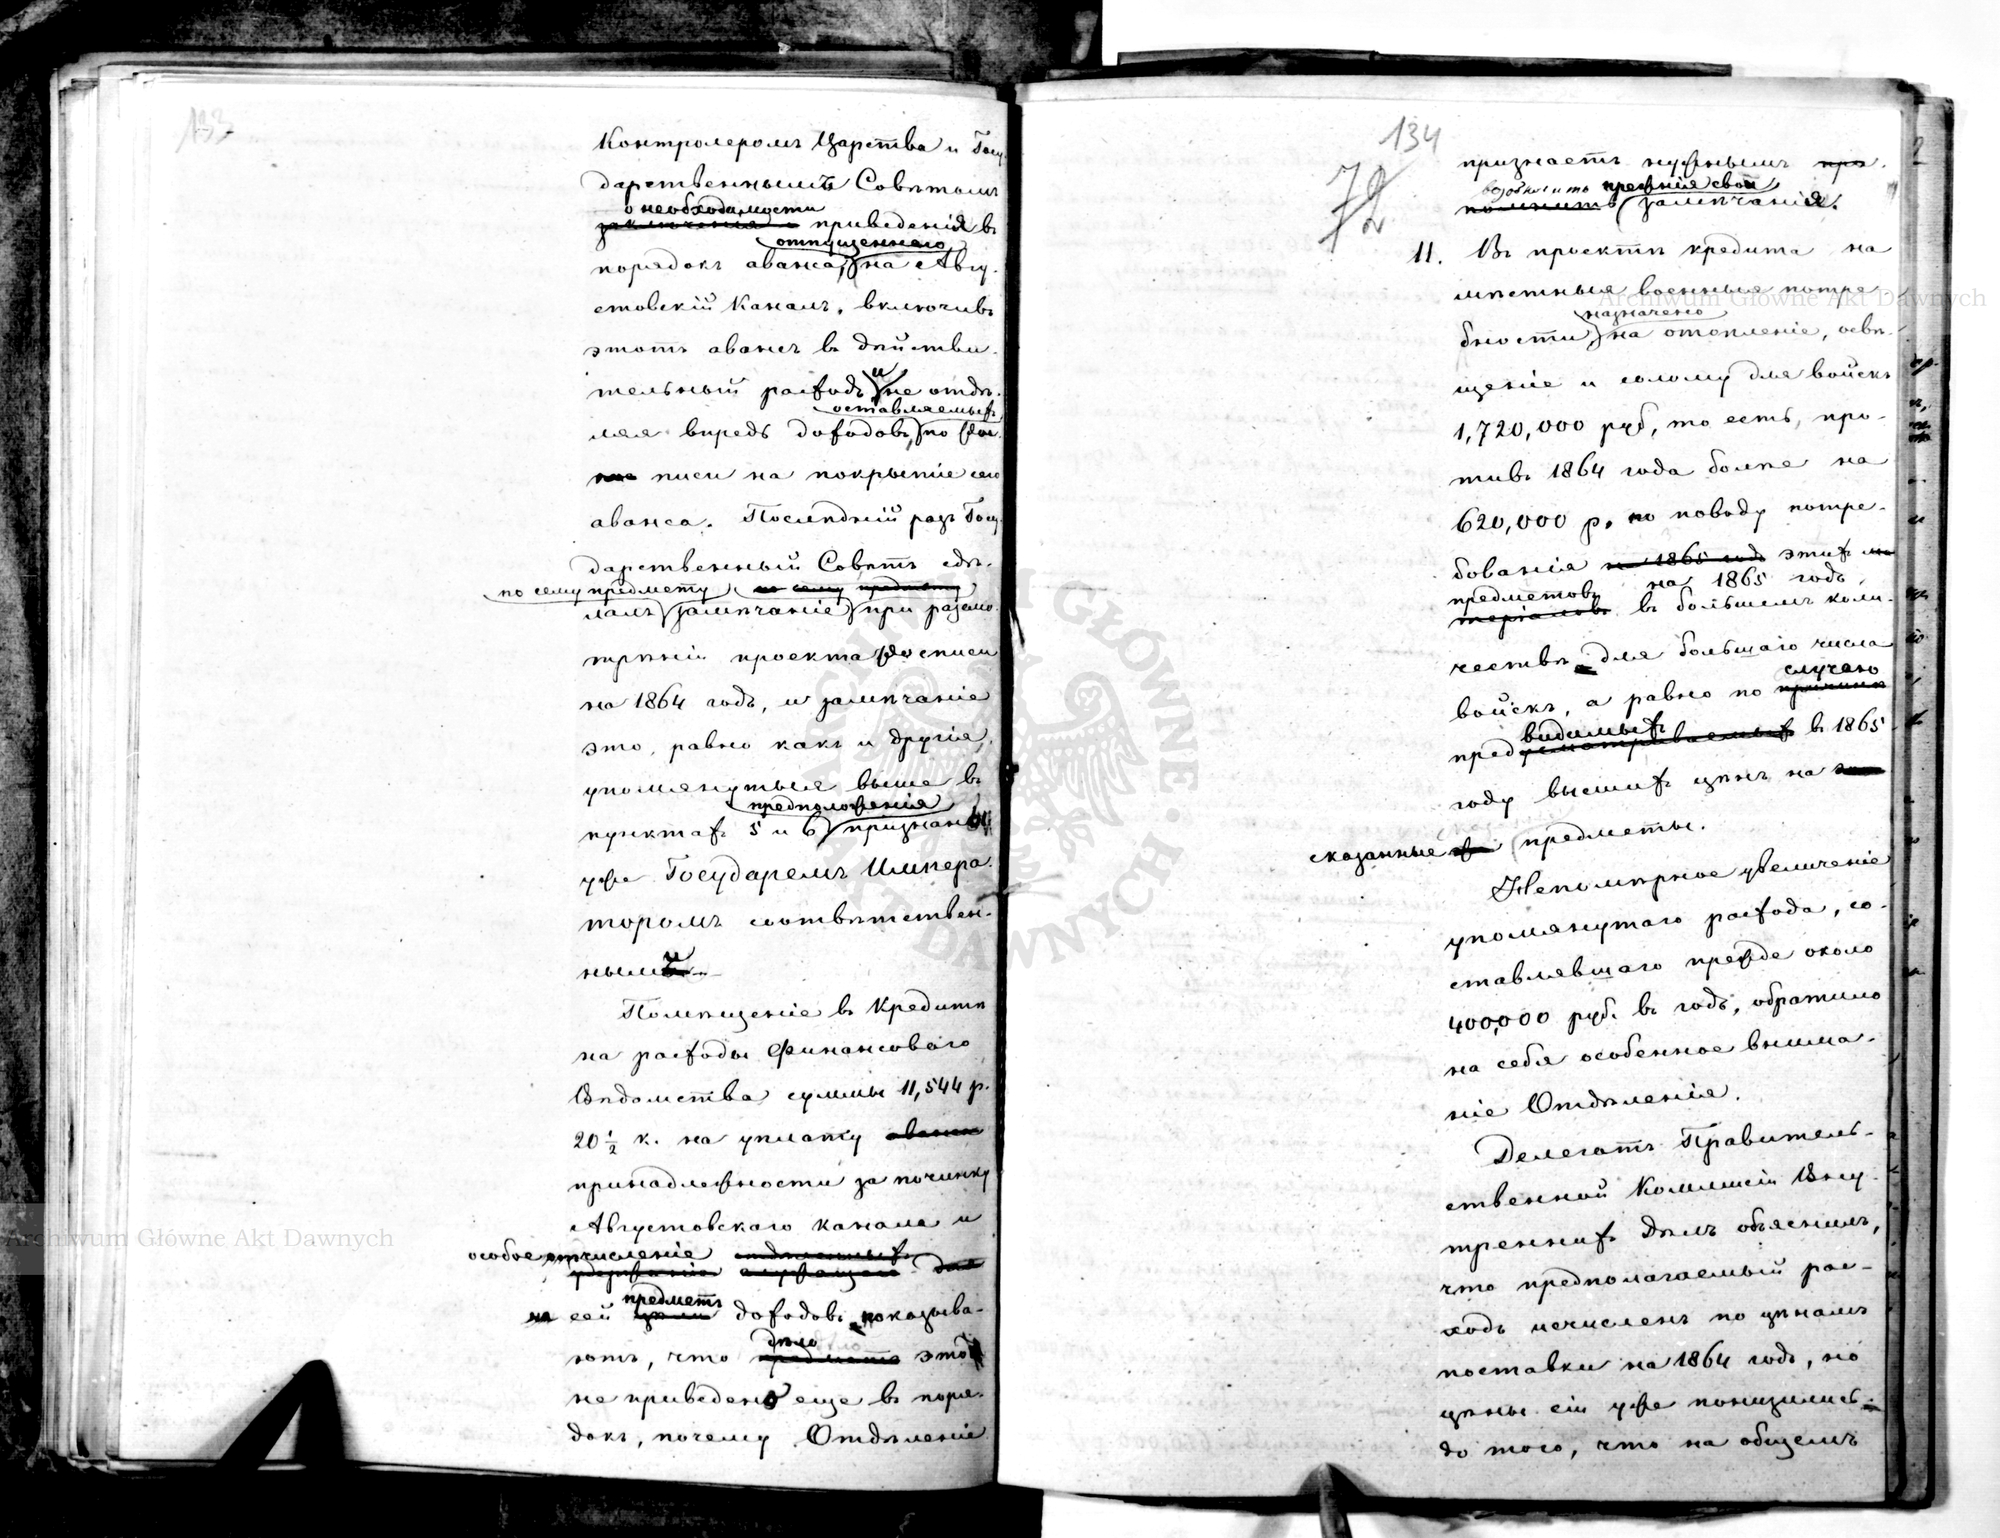 133
Контролеромъ Царства и Госу-
дарственнымъ Совѣтомъ
о необходимости
заключенія приведенія въ
отпущеннаго
порядокъ аванса, на Авгу-
стовскій Каналъ, включивъ
этотъ авансъ въ дѣйстви-
тельный расходъ и не отдѣ-
оставляемыхъ
ляя впредь доходовъ, по рос-
писи на покрытіе сего
аванса. Послѣдній разъ Госу-
дарственный Совѣтъ сдѣ-
по сему предмету по сему предмету
лалъ замѣчаніе при разсмо-
трѣніи проекта росписи
на 1864 годъ, и замѣчаніе
это, равно какъ и другія,
упомянутыя выше въ
предположенія
пунктахъ 5 и 6 признаны
уже Государемъ Импера-
торомъ соотвѣтствен-
ными.
Помѣщеніе въ Кредитѣ
на расходы Финансоваго
Вѣдомства суммы 11,544 р.
20 ½ к. на уплату аванса
принадлежности за починку
Августовскаго канала и
особое отчисленіе
удержаніе
на сей предметъ доходовъ показыва-
дѣло
ютъ, что предметъ это
не приведено еще въ поря-
докъ, почему Отдѣленіе
134
72
признаетъ нужнымъ про-
возобновить прежнія свои
полнить замѣчанія.
11. Въ проектѣ кредита на
мѣстныя военныя потре-
назначено
бности, на отопленіе, освѣ-
щеніе и солому для войскъ
1,720,000 руб, то есть, про-
тивъ 1864 года болѣе на
620,000 р. по поводу потре-
бованія на 1865 годъ этихъ ма-
предметовъ на 1865 годъ,
теріаловъ въ большемъ коли-
чествѣ для большаго числа
случаю
войскъ, а равно по причинѣ
видимыхъ
предусматриваемыхъ въ 1865
году высшихъ цѣнъ на
сказанные предметы.
Непомѣрное увеличеніе
упомянутаго расхода, со-
ставлявшаго прежде около
400,000 руб. въ годъ, обратило
на себя особенное внима-
ніе Отдѣленія.
Делегатъ Правитель-
ственной Коммисіи Вну-
треннихъ Дѣлъ объяснилъ,
что предполагаемый рас-
ходъ исчисленъ по цѣнамъ
поставки на 1864 годъ, но
цѣны сіи уже понизились
до того, что на общемъ
Archiwum Główne Akt Dawnych
Archiwum Główne Akt Dawnych
ARCHIWUM GŁÓWNE AKT DAWNYCH